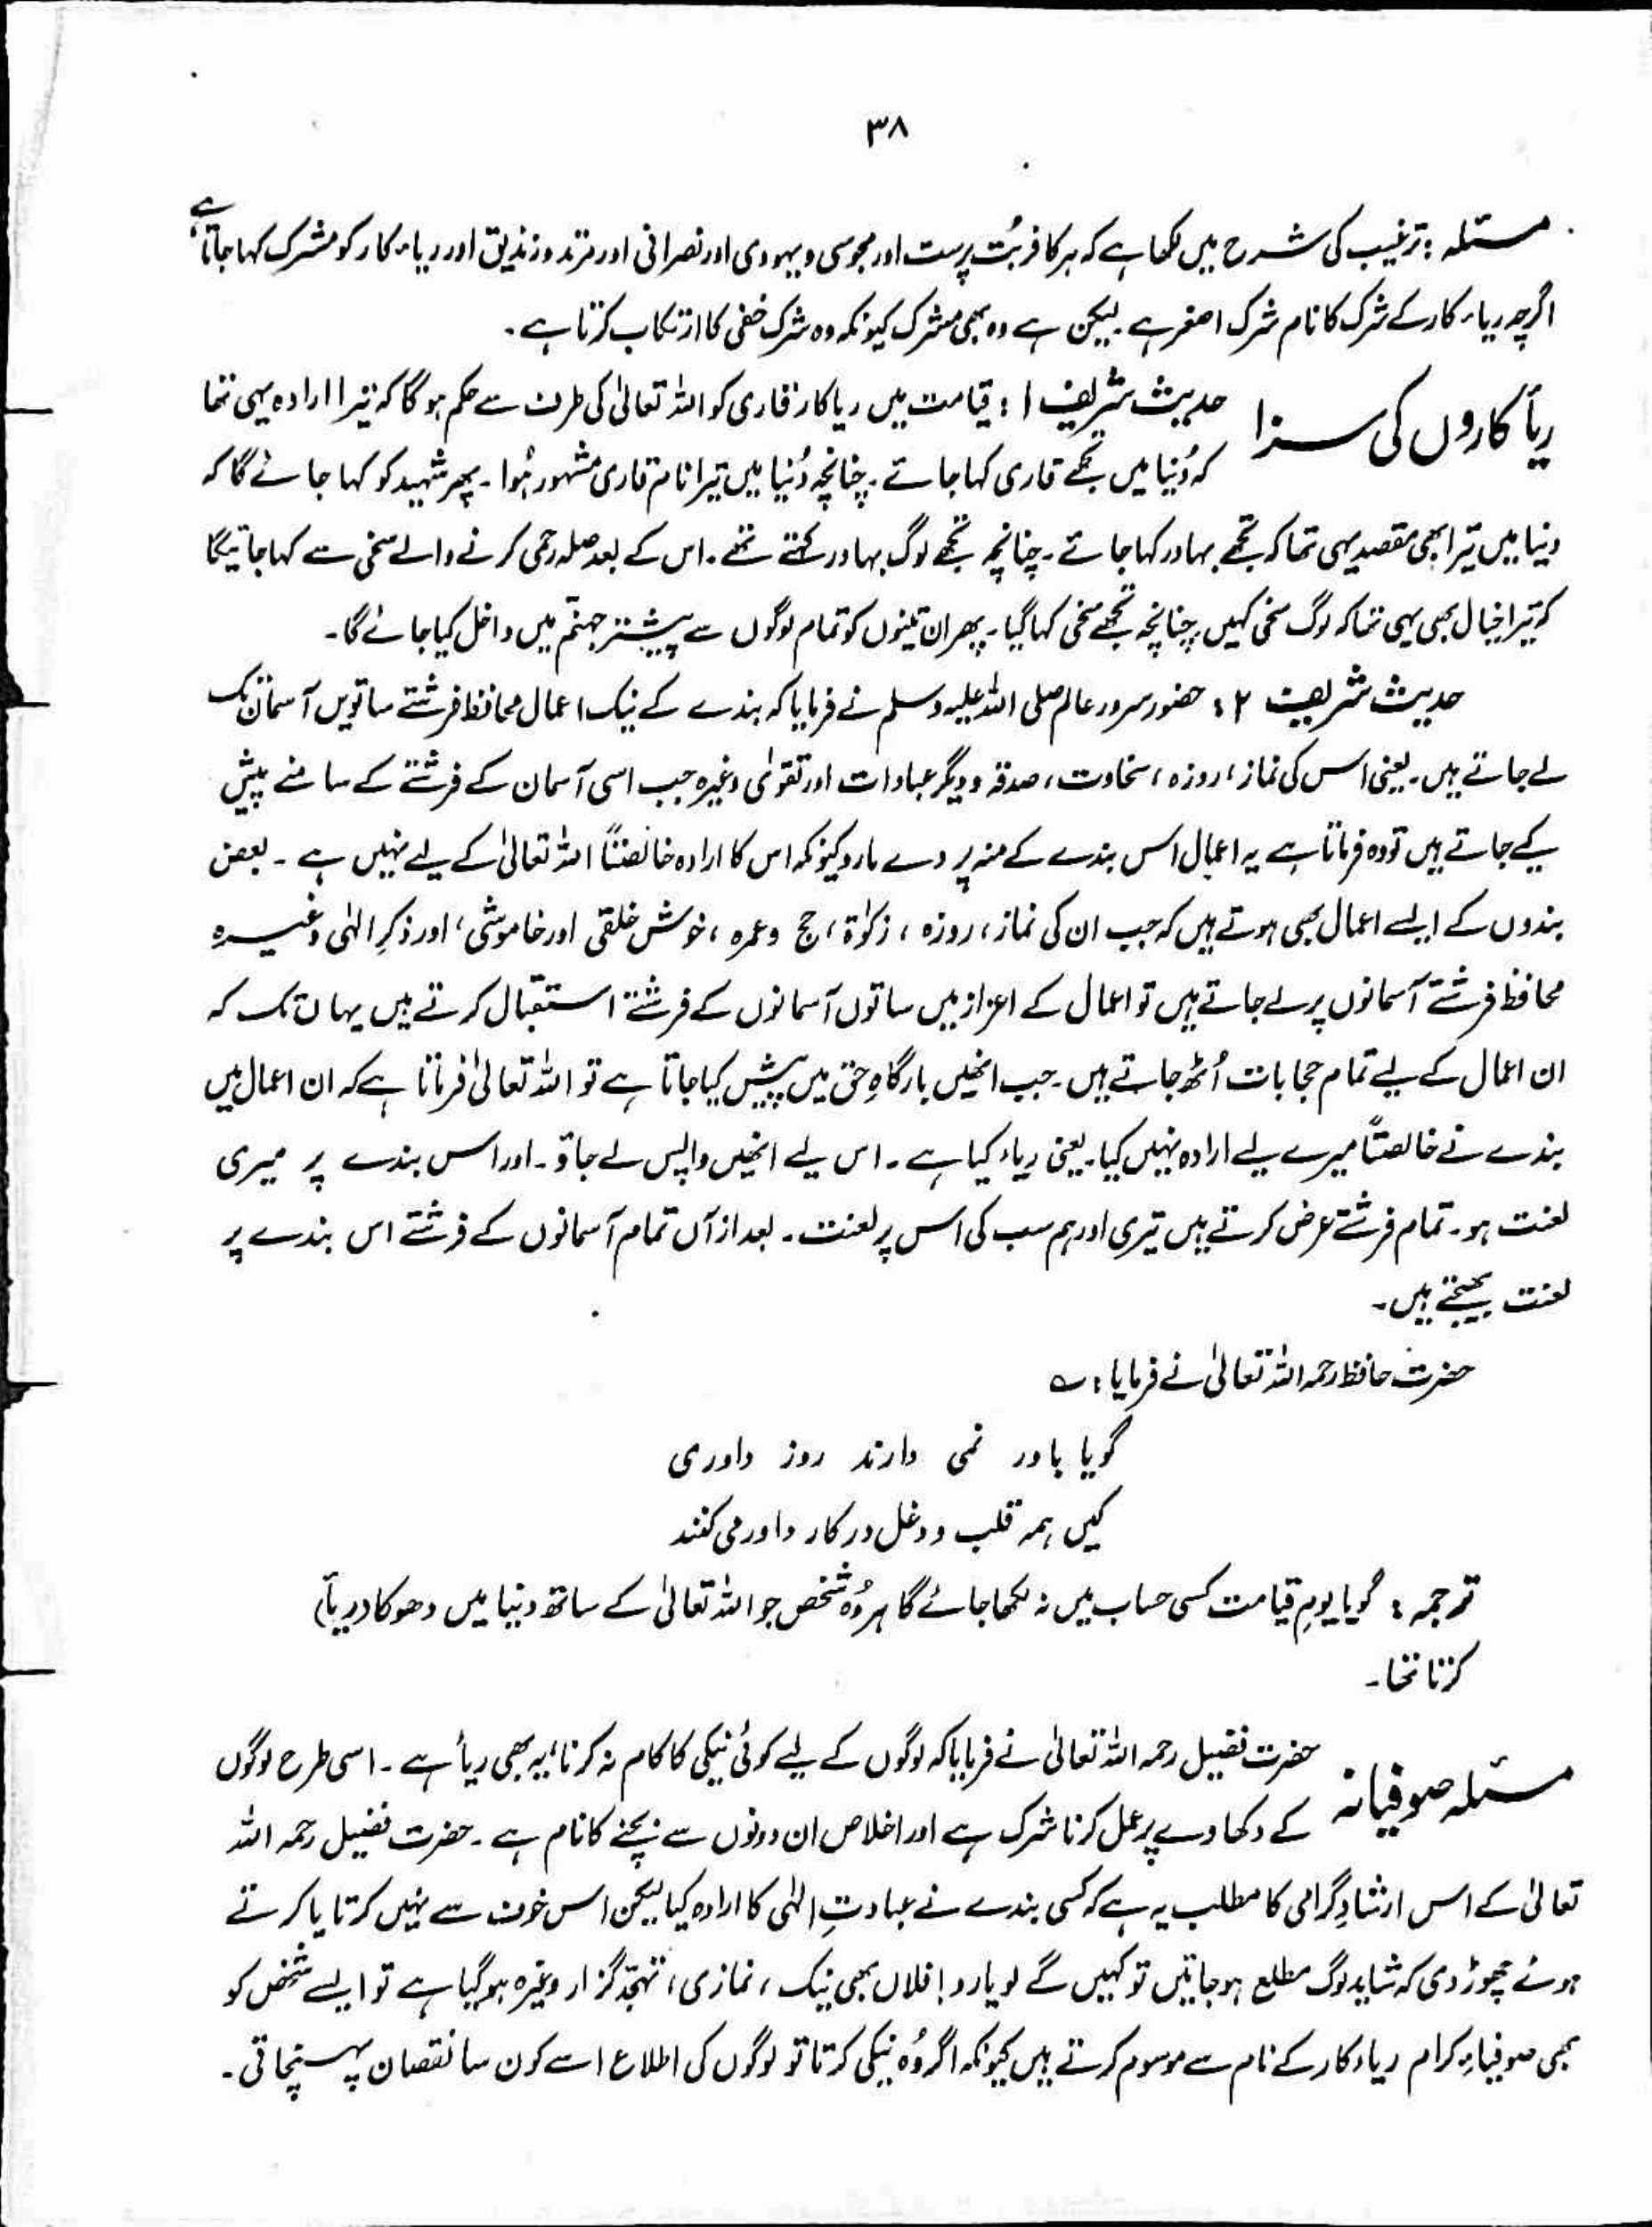 ۳۸
مسئلہ : ترغیب کی شرح میں لکھا ہے کہ ہر کافر بُت پرست اور مجوسی و یہودی اور نصرانی اور مرتد و زندیق اور ریاء کار کو مشرک کہا جاتا ہے
اگرچہ ریاء کار کے شرک کا نام شرک اصغر ہے ۔ لیکن ہے وہ بھی مشرک کیونکہ وہ شرک خفی کا ارتکاب کرتا ہے ۔
ریأ کاروں کی سزا
حدیث شریف ۱ : قیامت میں ریا کار قاری کو اللہ تعالیٰ کی طرف سے حکم ہو گا کہ تیرا ارادہ یہی تھا
کہ دُنیا میں تجھے قاری کہا جائے ۔ چنانچہ دُنیا میں تیرا نام قاری مشہور ہُوا ۔ پھر شہید کو کہا جائے گا کہ
دنیا میں تیرا بھی مقصد یہی تھا کہ تجھے بہادر کہا جائے ۔ چنانچہ تجھے لوگ بہادر کہتے تھے ۔ اس کے بعد صلہ رحمی کرنے والے سخی سے کہا جائیگا
کہ تیرا خیال بھی یہی تھا کہ لوگ سخی کہیں چنانچہ تجھے سخی کہا گیا ۔ پھر ان تینوں کو تمام لوگوں سے پیشتر جہنّم میں داخل کیا جائے گا ۔
حدیث شریف ۲ : حضور سرور عالم صلی اللہ علیہ وسلم نے فرمایا کہ بندے کے نیک اعمال محافظ فرشتے ساتویں آسمان تک
لے جاتے ہیں ۔ یعنی اس کی نماز ، روزہ ، سخاوت ، صدقہ و دیگر عبادات اور تقوٰی وغیرہ جب اسی آسمان کے فرشتے کے سامنے پیش
کیے جاتے ہیں تو وہ فرماتا ہے یہ اعمال اس بندے کے منہ پر دے مارو کیونکہ اس کا ارادہ خالصتاً اللہ تعالیٰ کے لیے نہیں ہے ۔ بعض
بندوں کے ایسے اعمال بھی ہوتے ہیں کہ جب ان کی نماز ، روزہ ، زکوٰۃ ، حج وعمرہ ، خوش خلقی اور خاموشی ، اور ذکرِ الہٰی وغیرہ
محافظ فرشتے آسمانوں پر لے جاتے ہیں تو اعمال کے اعزاز میں ساتوں آسمانوں کے فرشتے استقبال کرتے ہیں یہاں تک کہ
ان اعمال کے لیے تمام حجابات اُٹھ جاتے ہیں ۔ جب انھیں بارگاہِ حق میں پیش کیا جاتا ہے تو اللہ تعالیٰ فرماتا ہے کہ ان اعمال میں
بندے نے خالصتاً میرے لیے ارادہ نہیں کیا ۔ یعنی ریاء کیا ہے ۔ اس لیے انھیں واپس لے جاؤ ۔ اور اس بندے پر میری
لعنت ہو ۔ تمام فرشتے عرض کرتے ہیں تیری اور ہم سب کی اس پر لعنت ۔ بعد ازآں تمام آسمانوں کے فرشتے اس بندے پر
لعنت بھیجتے ہیں ۔
حضرت حافظ رحمہ اللہ تعالیٰ نے فرمایا : ؎
گویا باور نمی دارند روز داوری
کیں ہمہ قلب و دغل در کار داور می کنند
ترجمہ : گویا یومِ قیامت کسی حساب میں نہ لکھا جائے گا ہر وُہ شخص جو اللہ تعالیٰ کے ساتھ دنیا میں دھوکا (ریأ)
کرتا تھا ۔
مسئلہ صوفیانہ
حضرت فضیل رحمہ اللہ تعالیٰ نے فرمایا کہ لوگوں کے لیے کوئی نیکی کا کام نہ کرنا ، یہ بھی ریأ ہے ۔ اسی طرح لوگوں
کے دکھاوے پر عمل کرنا شرک ہے اور اخلاص ان دونوں سے بچنے کا نام ہے ۔ حضرت فضیل رحمہ اللہ
تعالیٰ کے اس ارشادِ گرامی کا مطلب یہ ہے کہ کسی بندے نے عبادتِ الٰہی کا ارادہ کیا لیکن اس خوف سے نہیں کرتا یا کرتے
ہوئے چھوڑ دی کہ شاید لوگ مطلع ہو جائیں تو کہیں گے لو یارو ! فلاں بھی نیک ، نمازی ، تہجّد گزار وغیرہ ہو گیا ہے تو ایسے شخص کو
بھی صوفیاءِ کرام ریاء کار کے نام سے موسوم کرتے ہیں کیونکہ اگر وُہ نیکی کرتا تو لوگوں کی اطلاع اسے کون سا نقصان پہنچاتی ۔